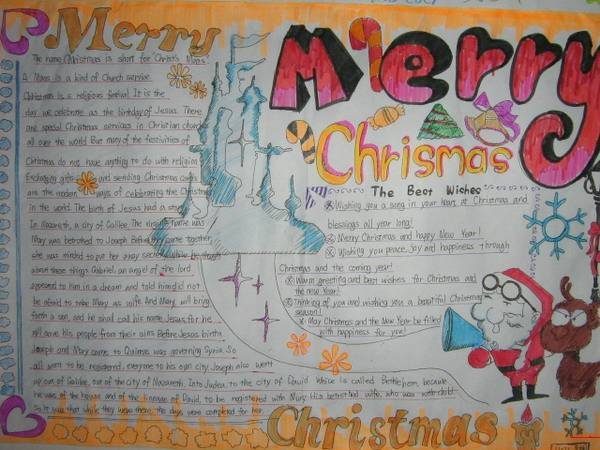 Merry
The name Christmas is short for Christ's Mass.
A Mass is a kind of Church service.
Christmas is a religious festival. It is the
day we celebrate as the birthday of Jesus. There
are special Christmas services in Christian churches
all over the world. But many of the festivities of
Christmas do not have anything to do with religion
Exchanging gifts and sending Christmas cards
are the modern ways of celebrating the Christmas
in the world. The birth of Jesus had a story
In Nazareth, a city of Galilee. The virgin's name was
Mary was betrothed to Joseph Before they came together,
she was minded to put her away secretly while he thought
about these things Gabriel, an angel of the lord
appeared to him in a dream and told him did not
be afraid to take Mary as wife. And Mary will bring
forth a son, and he shall call his name Jesus for he
will save his people from their sins Before Jesus birth,
Joseph and Mary came to Quirinus was governing Syria. So
all went to be registered, everyone to his own city. Joseph also went
up out of Galilee, out of the city of Nazareth, Into Judea, to the city of David Which is called Bethlehem, because
he was of the house and of the lineage of David, to be registered with Mary His betrothed wife, who was with child.
So it was that while they were there, the days were completed for her
Merry
Chrismas
The Best Wishes
Wishing you a song in your heart at Christmas and
blessings all year long!
Merry Christmas and happy New Year!
Wishing you peace, Joy and happiness through
Christmas and the coming year!
Warm greeting and best wishes for Christmas and
the new Year!
Thinking of you and wishing you a beautiful Christmas
season!
May Christmas and the New Year be filled
with happiness for you!
Christmas